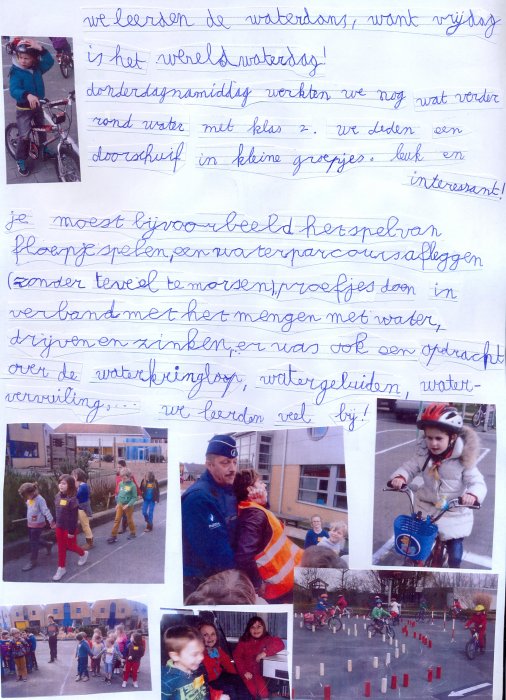 we leerden de waterdans, want vrijdag
is het wereldwaterdag!
donderdagnamiddag werkten we nog wat verder
rond water met klas 2. we deden een
doorschuif in kleine groepjes. leuk en
interessant!
je moest bijvoorbeeld het spel van
floepje spelen, een waterparcours afleggen
(zonder teveel te morsen), proefjes doen in
verband met het mengen met water,
drijven en zinken, er was ook een opdracht
over de waterkringloop, watergeluiden, water-
vervuiling, ... we leerden veel bij!